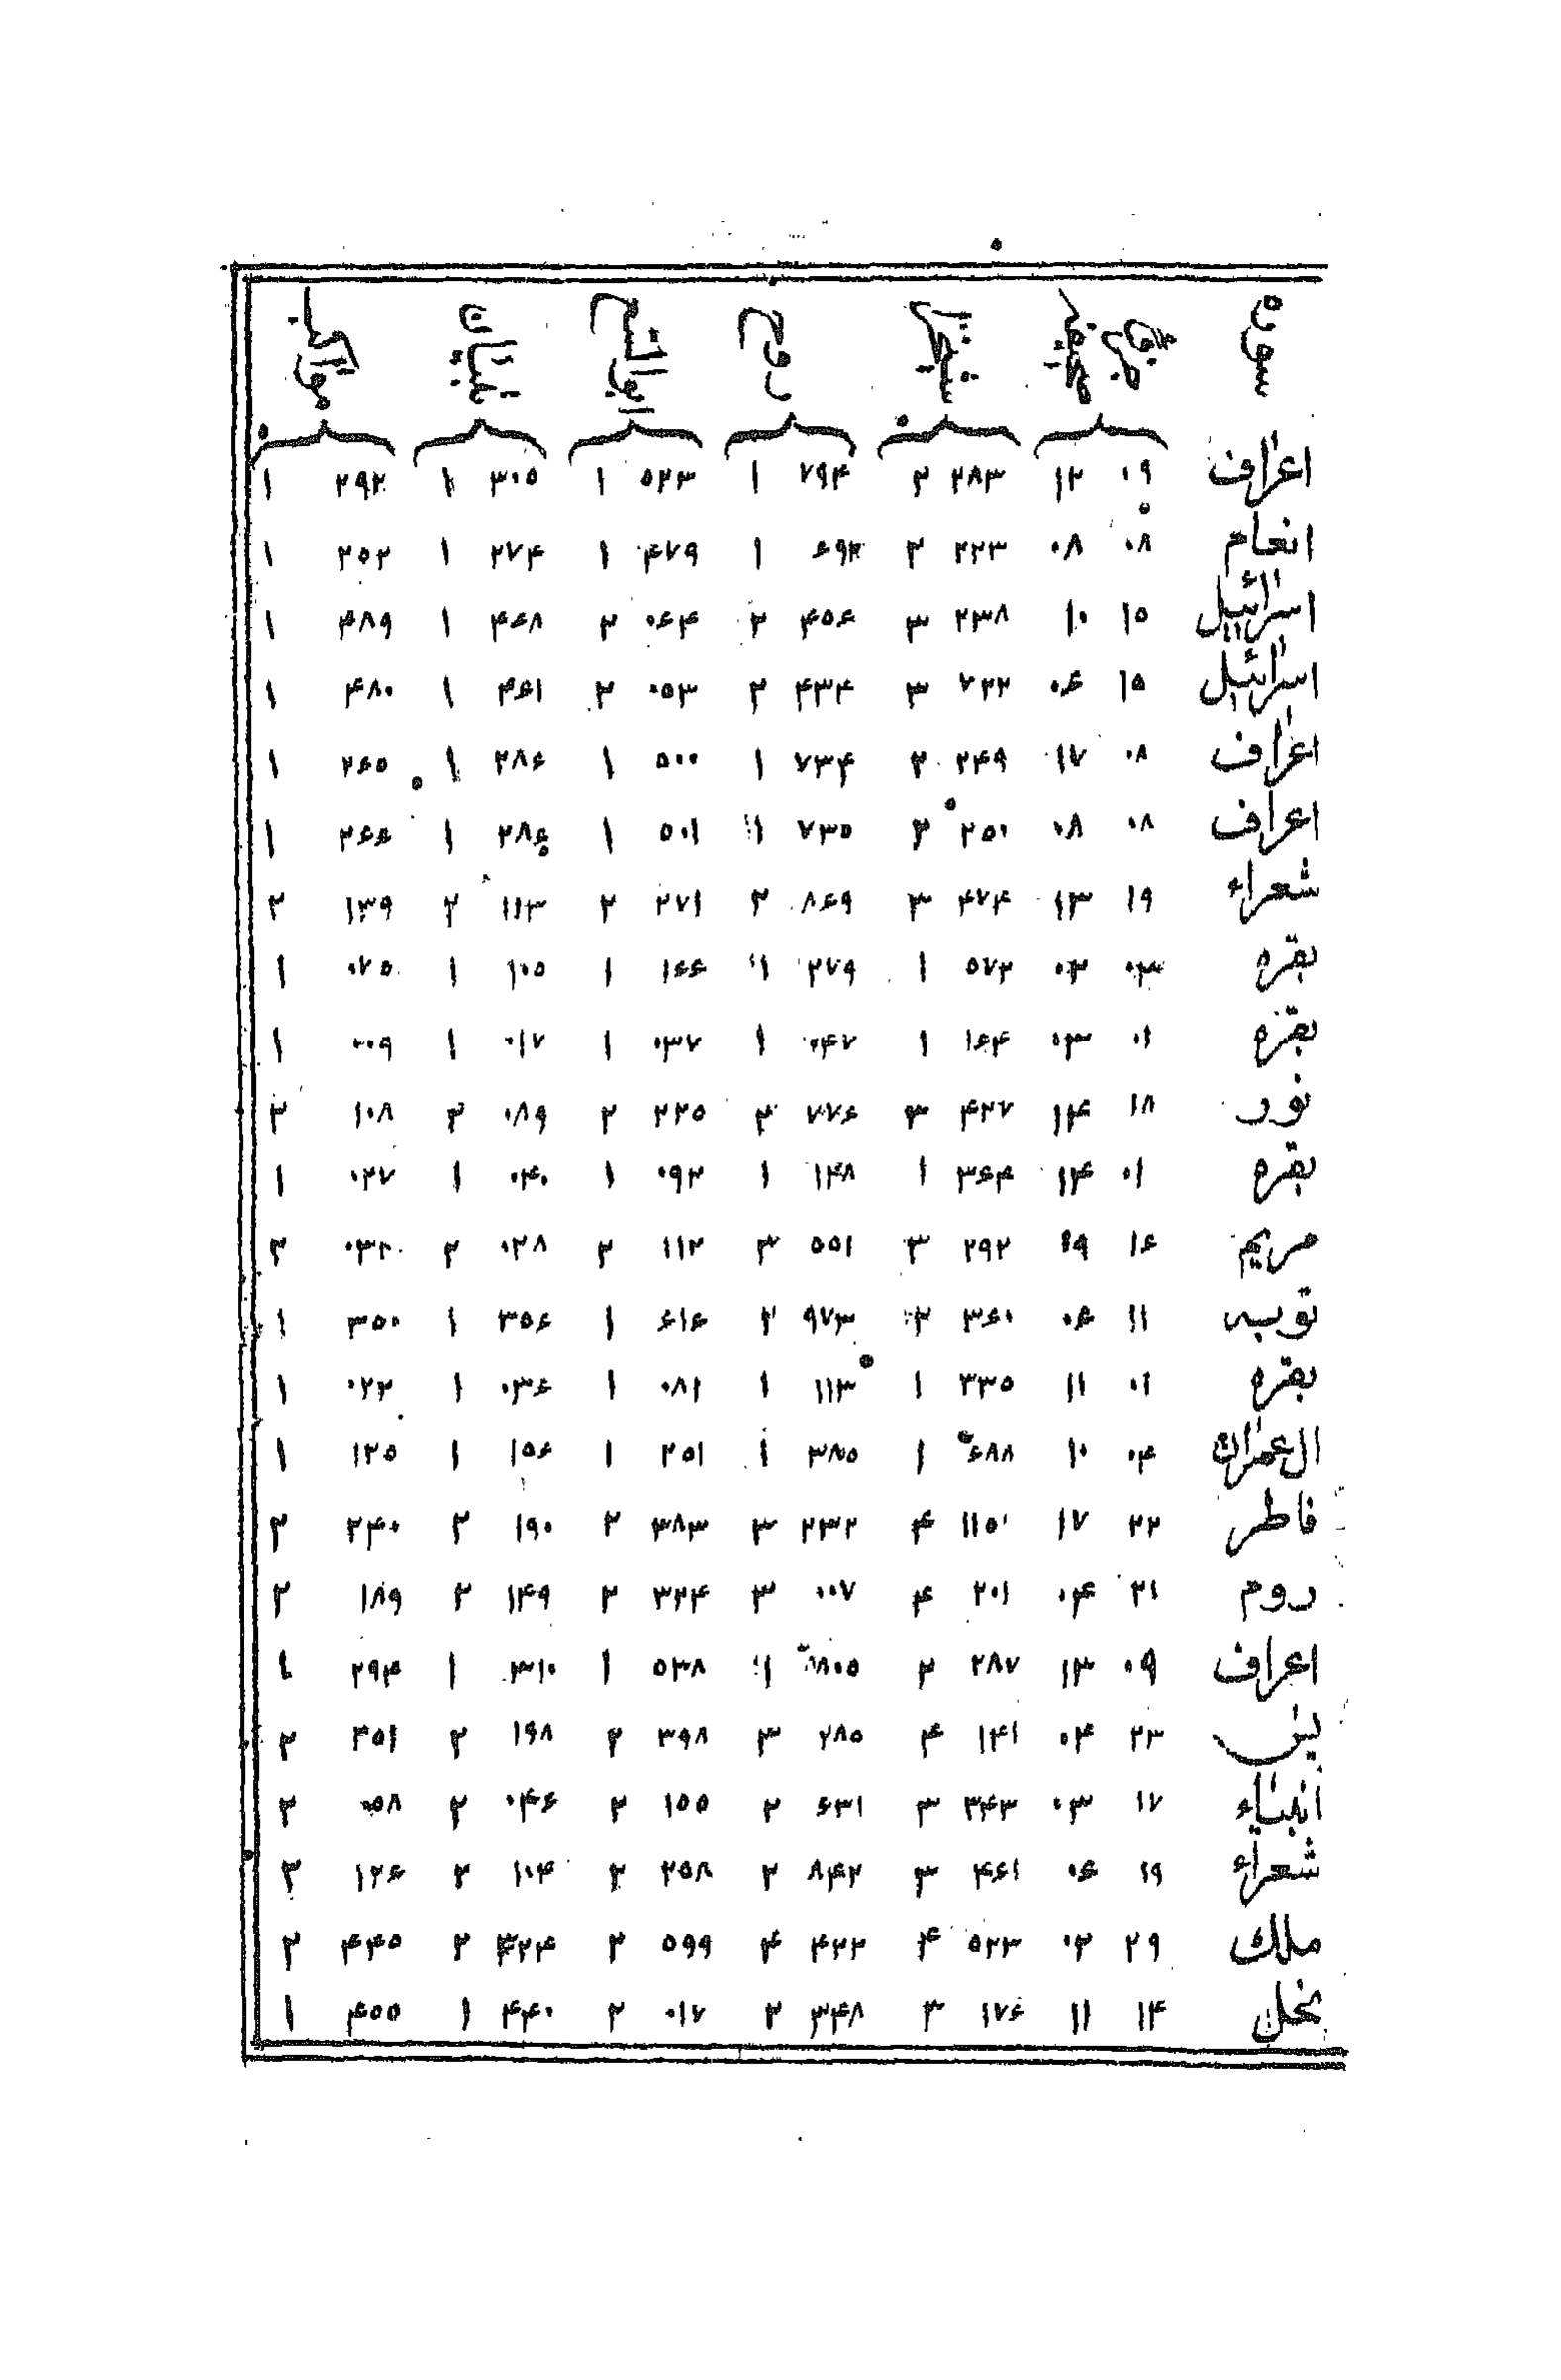 سوره
اعراف ۰۹ ۱۲ ۲۸۳ ۲ ۷۹۴ ۱ ۵۲۳ ۱ ۳۰۵ ۱ ۲۹۲ ۱
انعام ۰۸ ۰۸ ۲۲۳ ۲ ۶۹۲ ۱ ۴۷۹ ۱ ۲۷۴ ۱ ۲۵۲ ۱
اسرائیل ۱۵ ۱۰ ۲۳۸ ۳ ۴۵۶ ۲ ۰۶۴ ۲ ۴۶۸ ۱ ۴۸۹ ۱
اسرائیل ۱۵ ۰۶ ۷۲۲ ۳ ۴۳۴ ۲ ۰۵۳ ۲ ۴۶۱ ۱ ۴۸۰ ۱
اعراف ۰۸ ۱۷ ۲۴۹ ۲ ۷۳۴ ۱ ۵۰۰ ۱ ۲۸۶ ۱ ۲۶۵ ۱
اعراف ۰۸ ۰۸ ۲۵۰ ۲ ۷۳۵ ۱ ۵۰۱ ۱ ۲۸۶ ۱ ۲۶۶ ۱
شعراء ۱۹ ۱۳ ۴۷۴ ۳ ۸۶۹ ۲ ۲۷۱ ۲ ۱۱۳ ۲ ۱۳۹ ۲
بقره ۰۳ ۰۳ ۵۷۲ ۱ ۲۷۹ ۱ ۱۶۶ ۱ ۱۰۵ ۱ ۰۷۵ ۱
بقره ۰۱ ۰۳ ۱۶۴ ۱ ۰۴۷ ۱ ۰۳۷ ۱ ۰۱۷ ۱ ۰۰۹ ۱
نور ۱۸ ۱۴ ۴۲۷ ۳ ۷۷۶ ۲ ۲۲۵ ۲ ۰۸۹ ۲ ۱۰۸ ۲
بقره ۰۱ ۱۴ ۳۶۴ ۱ ۱۴۸ ۱ ۰۹۲ ۱ ۰۴۰ ۱ ۰۲۷ ۱
مریم ۱۶ ۱۹ ۲۹۲ ۳ ۵۵۱ ۲ ۱۱۲ ۲ ۰۲۸ ۲ ۰۳۲ ۲
توبه ۱۱ ۰۶ ۳۶۰ ۲ ۹۷۳ ۲ ۶۱۶ ۱ ۳۵۶ ۱ ۳۵۰ ۱
بقره ۰۱ ۱۱ ۳۳۵ ۱ ۱۱۳ ۱ ۰۸۱ ۱ ۰۳۶ ۱ ۰۲۲ ۱
ال عمران ۰۴ ۱۰ ۶۸۸ ۱ ۳۸۵ ۱ ۲۵۱ ۱ ۱۵۶ ۱ ۱۲۵ ۱
فاطر ۲۲ ۱۷ ۱۱۵۰ ۴ ۲۳۲ ۳ ۳۸۳ ۲ ۱۹۰ ۲ ۲۴۰ ۲
روم ۲۱ ۰۴ ۲۰۱ ۴ ۰۰۷ ۳ ۳۲۴ ۲ ۱۴۹ ۲ ۱۸۹ ۲
اعراف ۰۹ ۱۳ ۲۸۷ ۲ ۸۰۵ ۱ ۵۳۸ ۱ ۳۱۰ ۱ ۲۹۴ ۱
یٰس ۲۳ ۰۴ ۱۴۱ ۴ ۲۸۵ ۳ ۳۹۸ ۲ ۱۹۸ ۲ ۲۵۱ ۲
انبیاء ۱۷ ۰۳ ۳۴۳ ۳ ۶۳۱ ۲ ۱۵۵ ۲ ۰۴۶ ۲ ۰۵۸ ۲
شعراء ۱۹ ۰۶ ۴۶۱ ۳ ۸۴۲ ۲ ۲۵۸ ۲ ۱۰۴ ۲ ۱۲۶ ۲
ملك ۲۹ ۰۲ ۵۲۳ ۴ ۴۲۲ ۴ ۵۹۹ ۲ ۲ ۴۴۵ ۲
نحل ۱۴ ۱۱ ۱۷۶ ۳ ۳۴۸ ۲ ۰۱۷ ۲ ۴۴۰ ۱ ۴۵۵ ۱